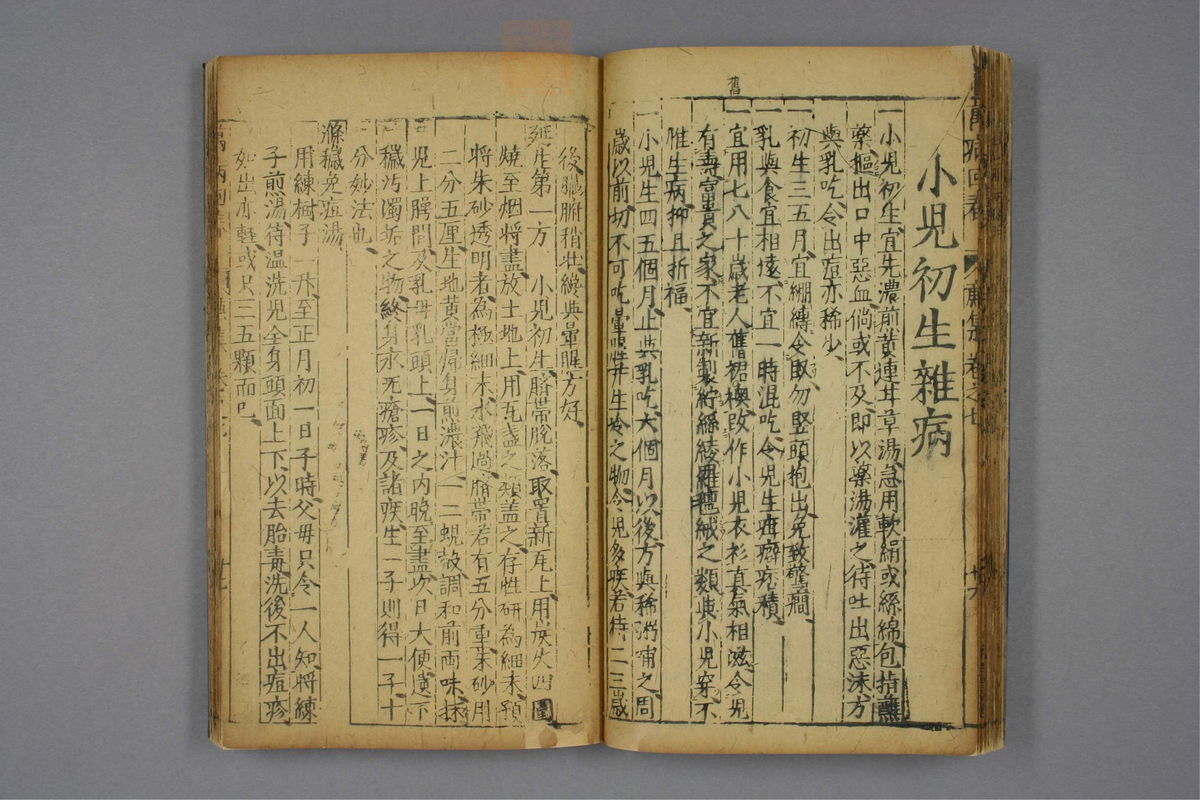 小兒初生雜病
一小兒初生宜先濃煎黃連甘草湯急用軟絹或絲綿包指蘸
藥摳出口中惡血倘或不及即以藥湯灌之待吐出惡沫方
與乳吃令出痘亦稀少
一初生三五月宜綳縛令臥勿竪頭抱出免致驚癇
一乳與食宜相遠不宜一時混吃令兒生疳癖痃積
一宜用七八十歲老人舊裙襖改作小兒衣衫真氣相滋令兒
舊
有壽富貴之家不宜新製紵絲綾羅氊絨之類與小兒穿不
惟生病抑且折福
一小兒生四五個月止與乳吃六個月以後方與稀粥哺之周
歲以前切不可吃葷腥并生冷之物令兒多疾若待二三歲
後臟腑稍壯纔與葷腥方好
延生第一方 小兒初生臍帶脫落取置新瓦上用炭火四圍
燒至烟將盡放土地上用瓦盞之類盖之存性研為細末預
將朱砂透明者為極細末水飛過臍帶若有五分重朱砂用
二分五厘生地黃當歸身煎濃汁一二蜆殼調和前両味抹
兒上腭間及乳母乳頭上一日之內晚至盡次日大便遺下
穢汚濁垢之物終身永无瘡疹及諸疾生一子則得一子十
分妙法也
滌穢免痘湯
用練樹子一升至正月初一日子時父母只令一人知將練
子煎湯待溫洗兒全身頭面上下以去胎毒洗後不出痘疹
如出亦輕或只三五顆而已